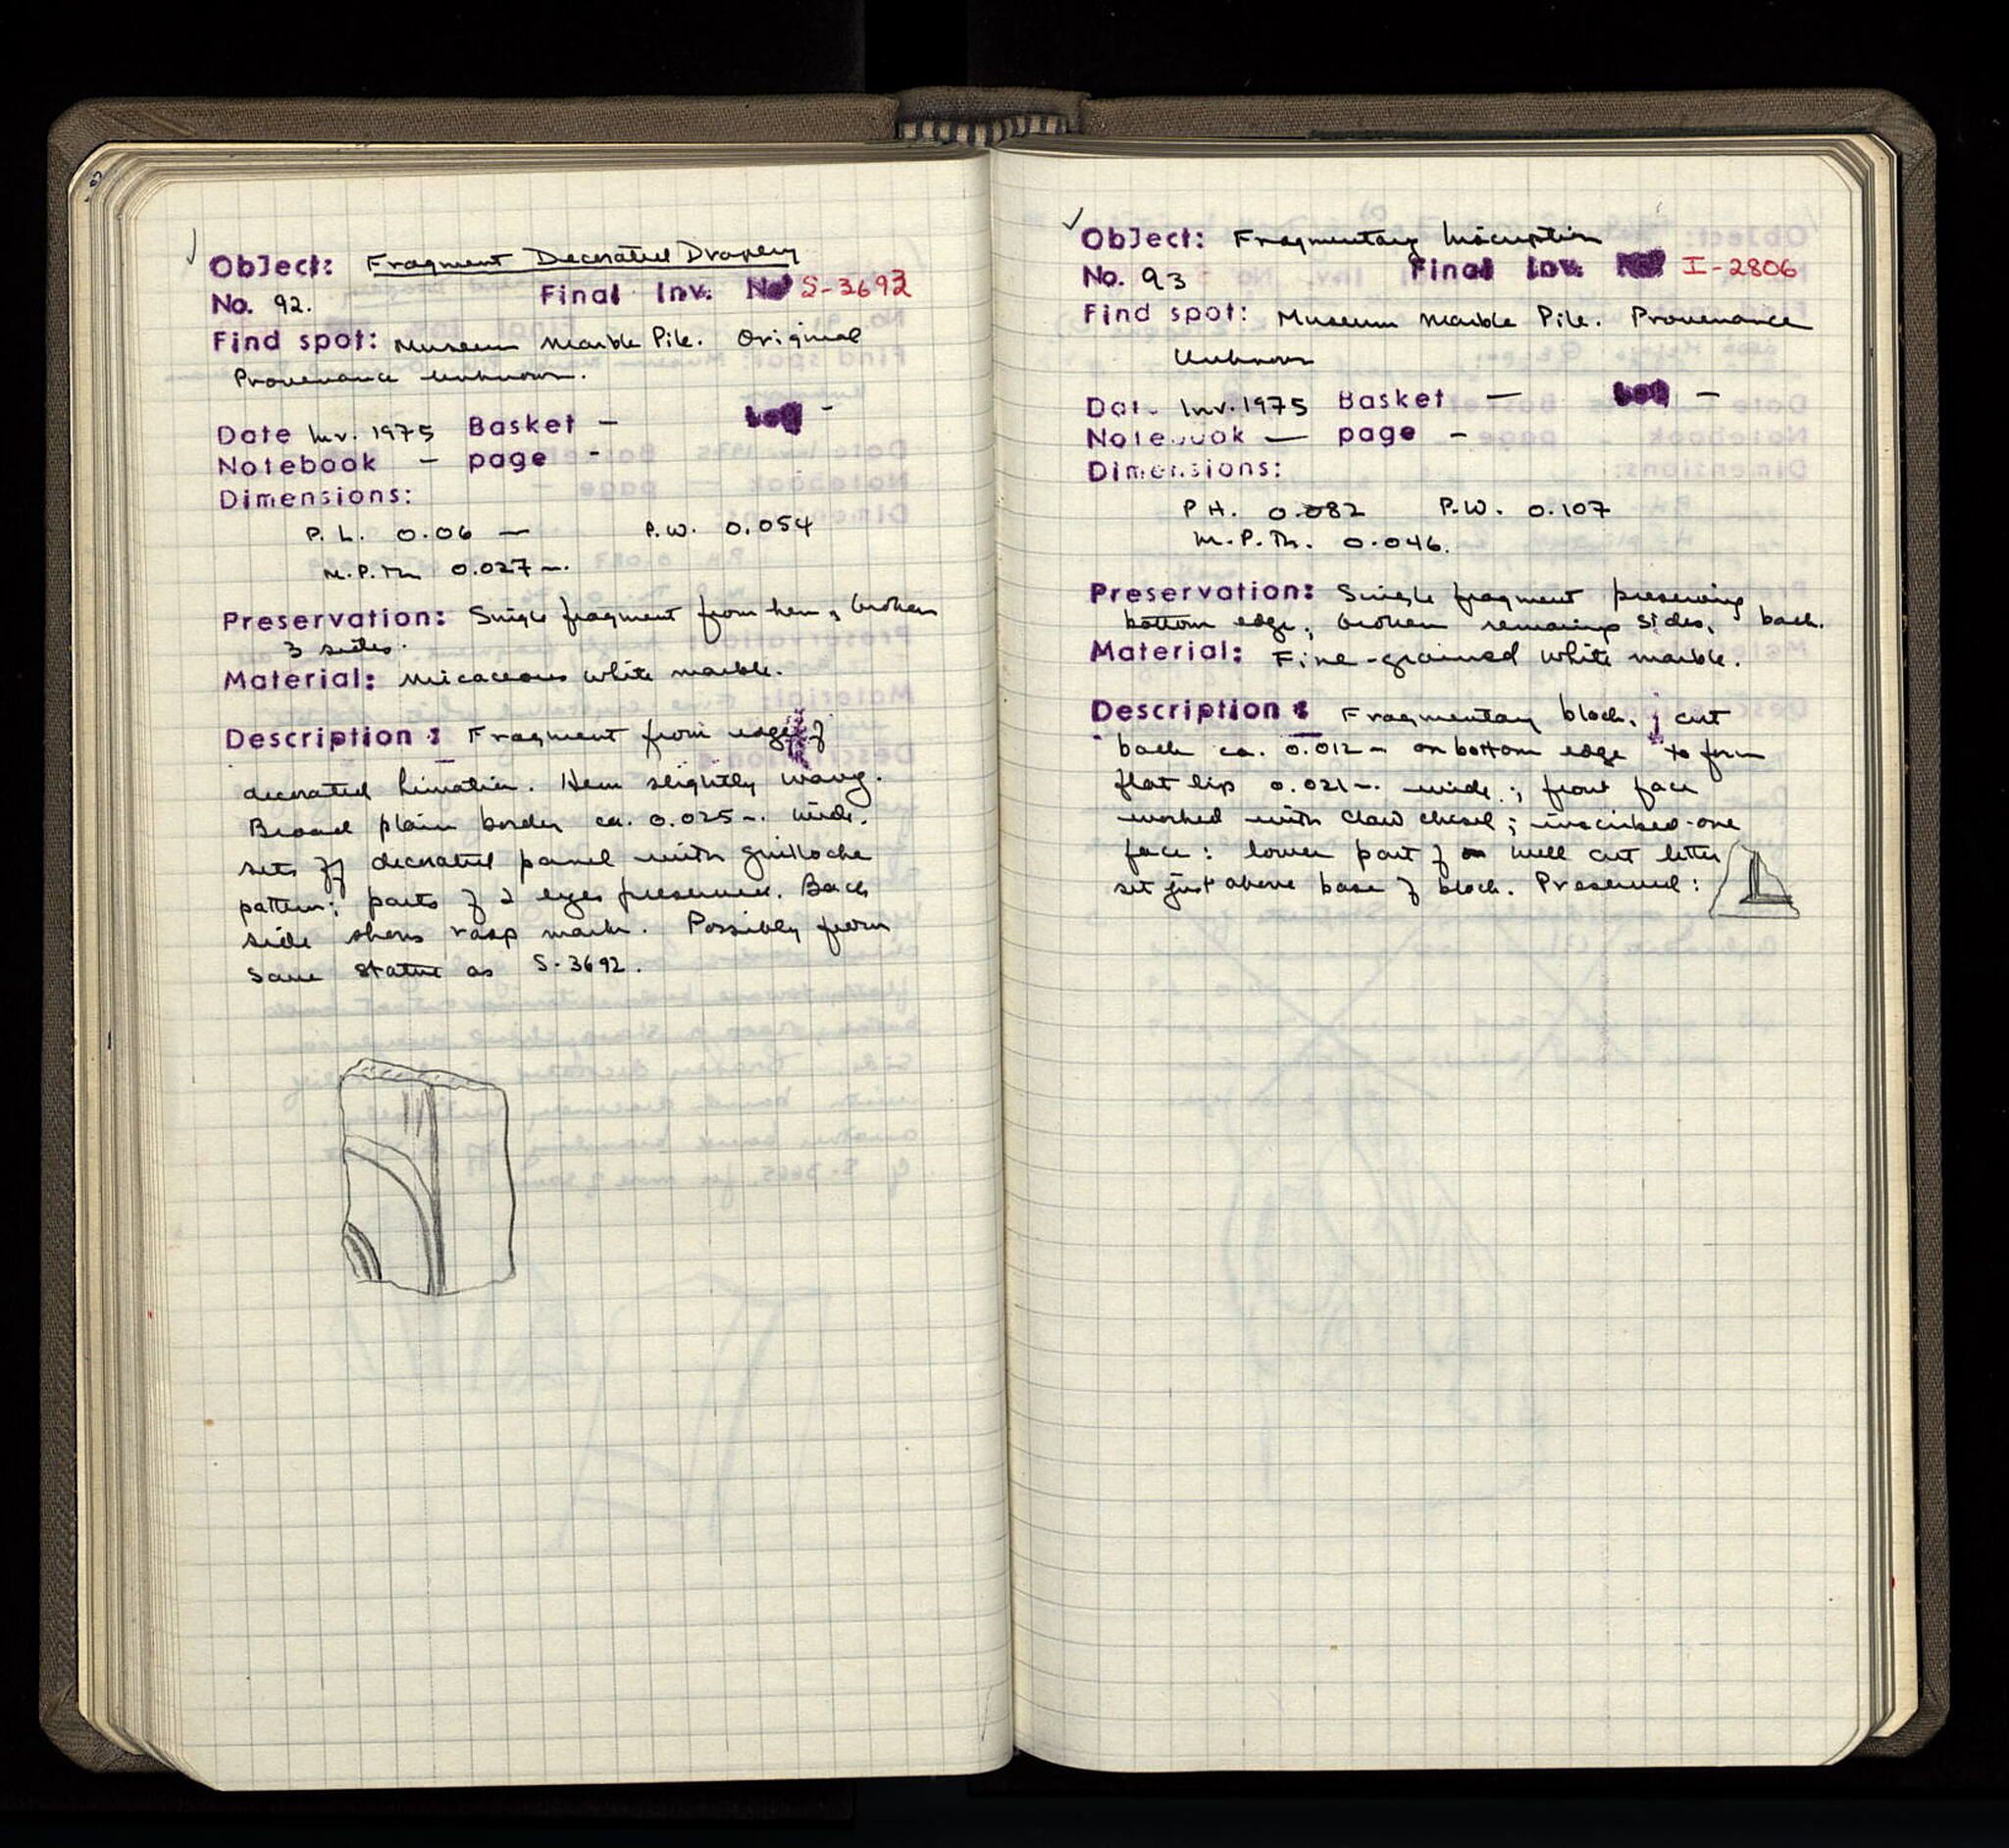 Object: Fragment Decorated Drapery
No. 92. Final Inv. No S-3693
Find spot: Museum Marble Pile. Original
Provenance unknown.
Date Inv. 1975 Basket –
Notebook – page –
Dimensions:
P. L. 0.06 — P.W. 0.054
M.P.Th 0.027 m.
Preservation: Single fragment from hem, broken
3 sides.
Material: Micaceous white marble.
Description: Fragment from edge of
decorated himation. Hem slightly wavy.
Broad plain border ca. 0.025 m. wide.
sets off decorated panel with guilloche
pattern; parts of 2 eyes preserved. Back
side shows rasp mark. Possibly from
same statue as S-3692.
Object: Fragmentary Inscription
No. 93 Final Inv. No I-2806
Find spot: Museum Marble Pile. Provenance
Unknown
Dat. Inv. 1975 Basket —
Notebook — page –
Dimensions:
P H. 0.082 P.W. 0.107
M.P.Th. 0.046.
Preservation: Single fragment preserving
bottom edge; broken remaining sides, back.
Material: Fine-grained white marble.
Description: Fragmentary block, ; cut
back ca. 0.012 m on bottom edge to form
flat lip 0.021 m. wide.; front face
worked with claw chisel; inscribed one
face: lower part of well cut letter
set just above base of block. Preserved: